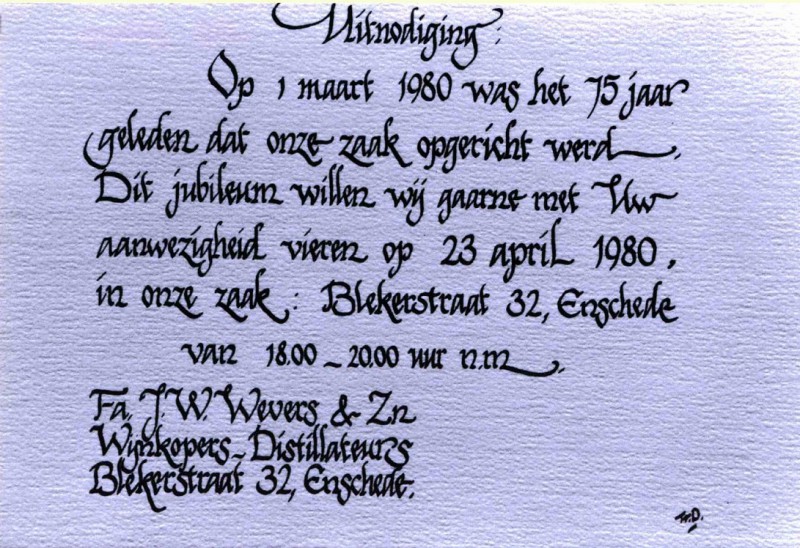 Uitnodiging:
Op 1 maart 1980 was het 75 jaar
geleden dat onze zaak opgericht werd.
Dit jubileum willen wij gaarne met Uw
aanwezigheid vieren op 23 april 1980,
in onze zaak: Blekerstraat 32, Enschede
van 18.00 - 20.00 uur n.m.
Fa. J.W. Wevers & Zn
Wijnkopers - Distillateurs
Blekerstraat 32, Enschede.
W.D.